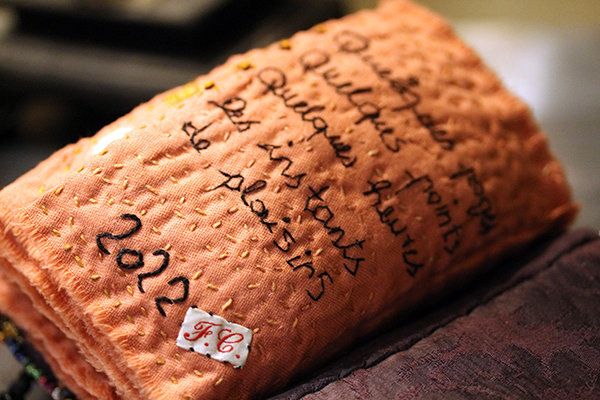 Quelques pages
Quelques points
Quelques heures
Des instants
de plaisirs
2022
F.C.